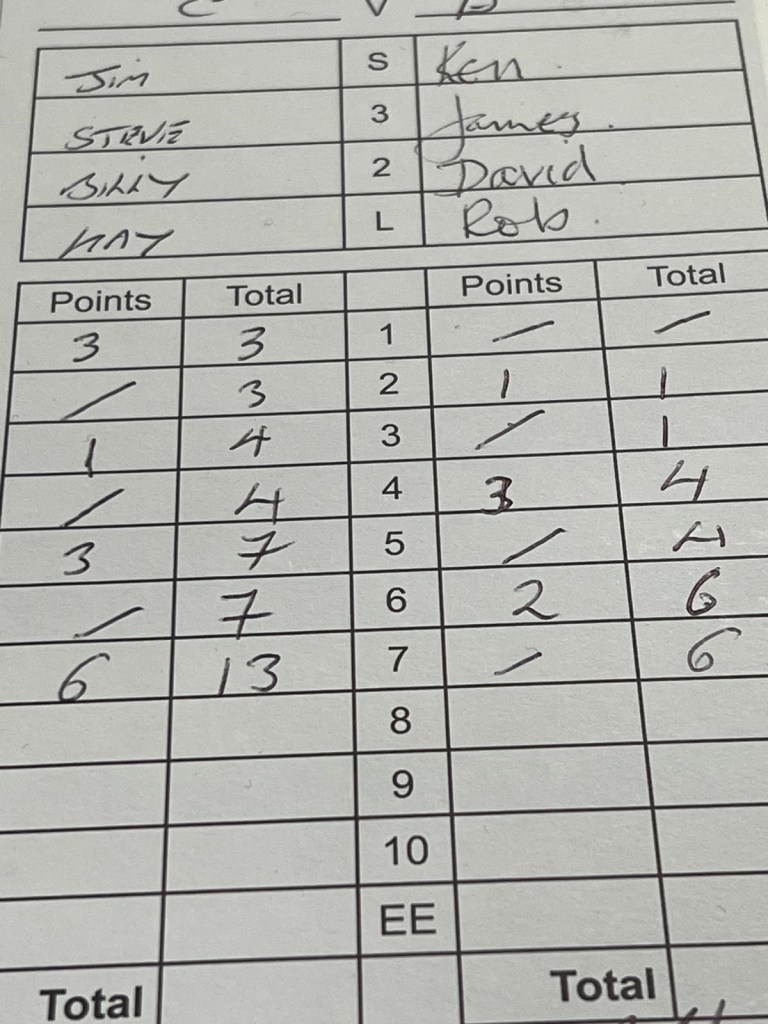 C V D
Jim S Ken
STEVIE 3 James
BILLY 2 David
HAY L Rob
Points Total Points Total
3 3 1 / /
/ 3 2 1 1
1 4 3 / 1
/ 4 4 3 4
3 7 5 / 4
/ 7 6 2 6
6 13 7 / 6
8
9
10
EE
Total Total